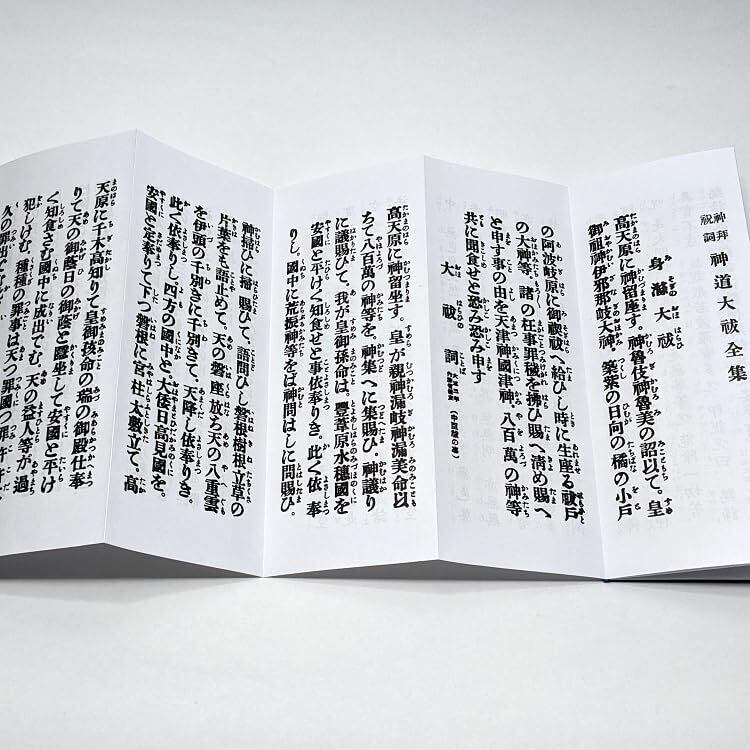 神拜祝詞 神道大祓全集
身滌大祓
高天原に神留座す。神魯伎神魯美の詔以て。皇
御祖神伊邪那岐大神。築紫の日向の橘の小戸
の阿波岐原に御禊祓へ給ひし時に生座る祓戸
の大神等。諸の枉事罪穢を拂ひ賜へ淸め賜へ
と申す事の由を天津神國津神。八百萬の神等
共に聞食せと恐み恐み申す
大祓詞
(中臣祓の事)
高天原に神留座す。皇が親神漏岐神漏美命以
ちて八百萬の神等を。神集へに集賜ひ。神議り
に議賜ひて。我が皇御孫命は。豐葦原水穗國を
安國と平けく知食せと事依奉りき。此く依奉
りし。國中に荒振神等をは神問はしに問賜ひ。
神掃ひに掃賜ひて。語問ひし磐根樹根立草の
片葉をも語止めて。天の磐座放ち天の八重雲
を伊頭の千別きに千別きて。天降し依奉りき。
此く依奉りし四方の國中と大倭日高見國を。
安國と定奉りて下つ磐根に宮柱太敷立て。高
天原に千木高知りて皇御孫命の瑞の御殿仕奉
りて天の御蔭日の御蔭と隱坐して安國と平け
く知食さむ國中に成出でむ。天の益人等が過
犯しけむ。種種の罪事は天つ罪國つ罪